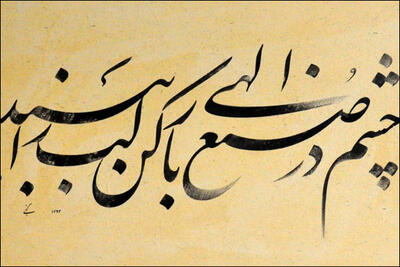 چشم در صُنع الهی باز کن لب را ببند